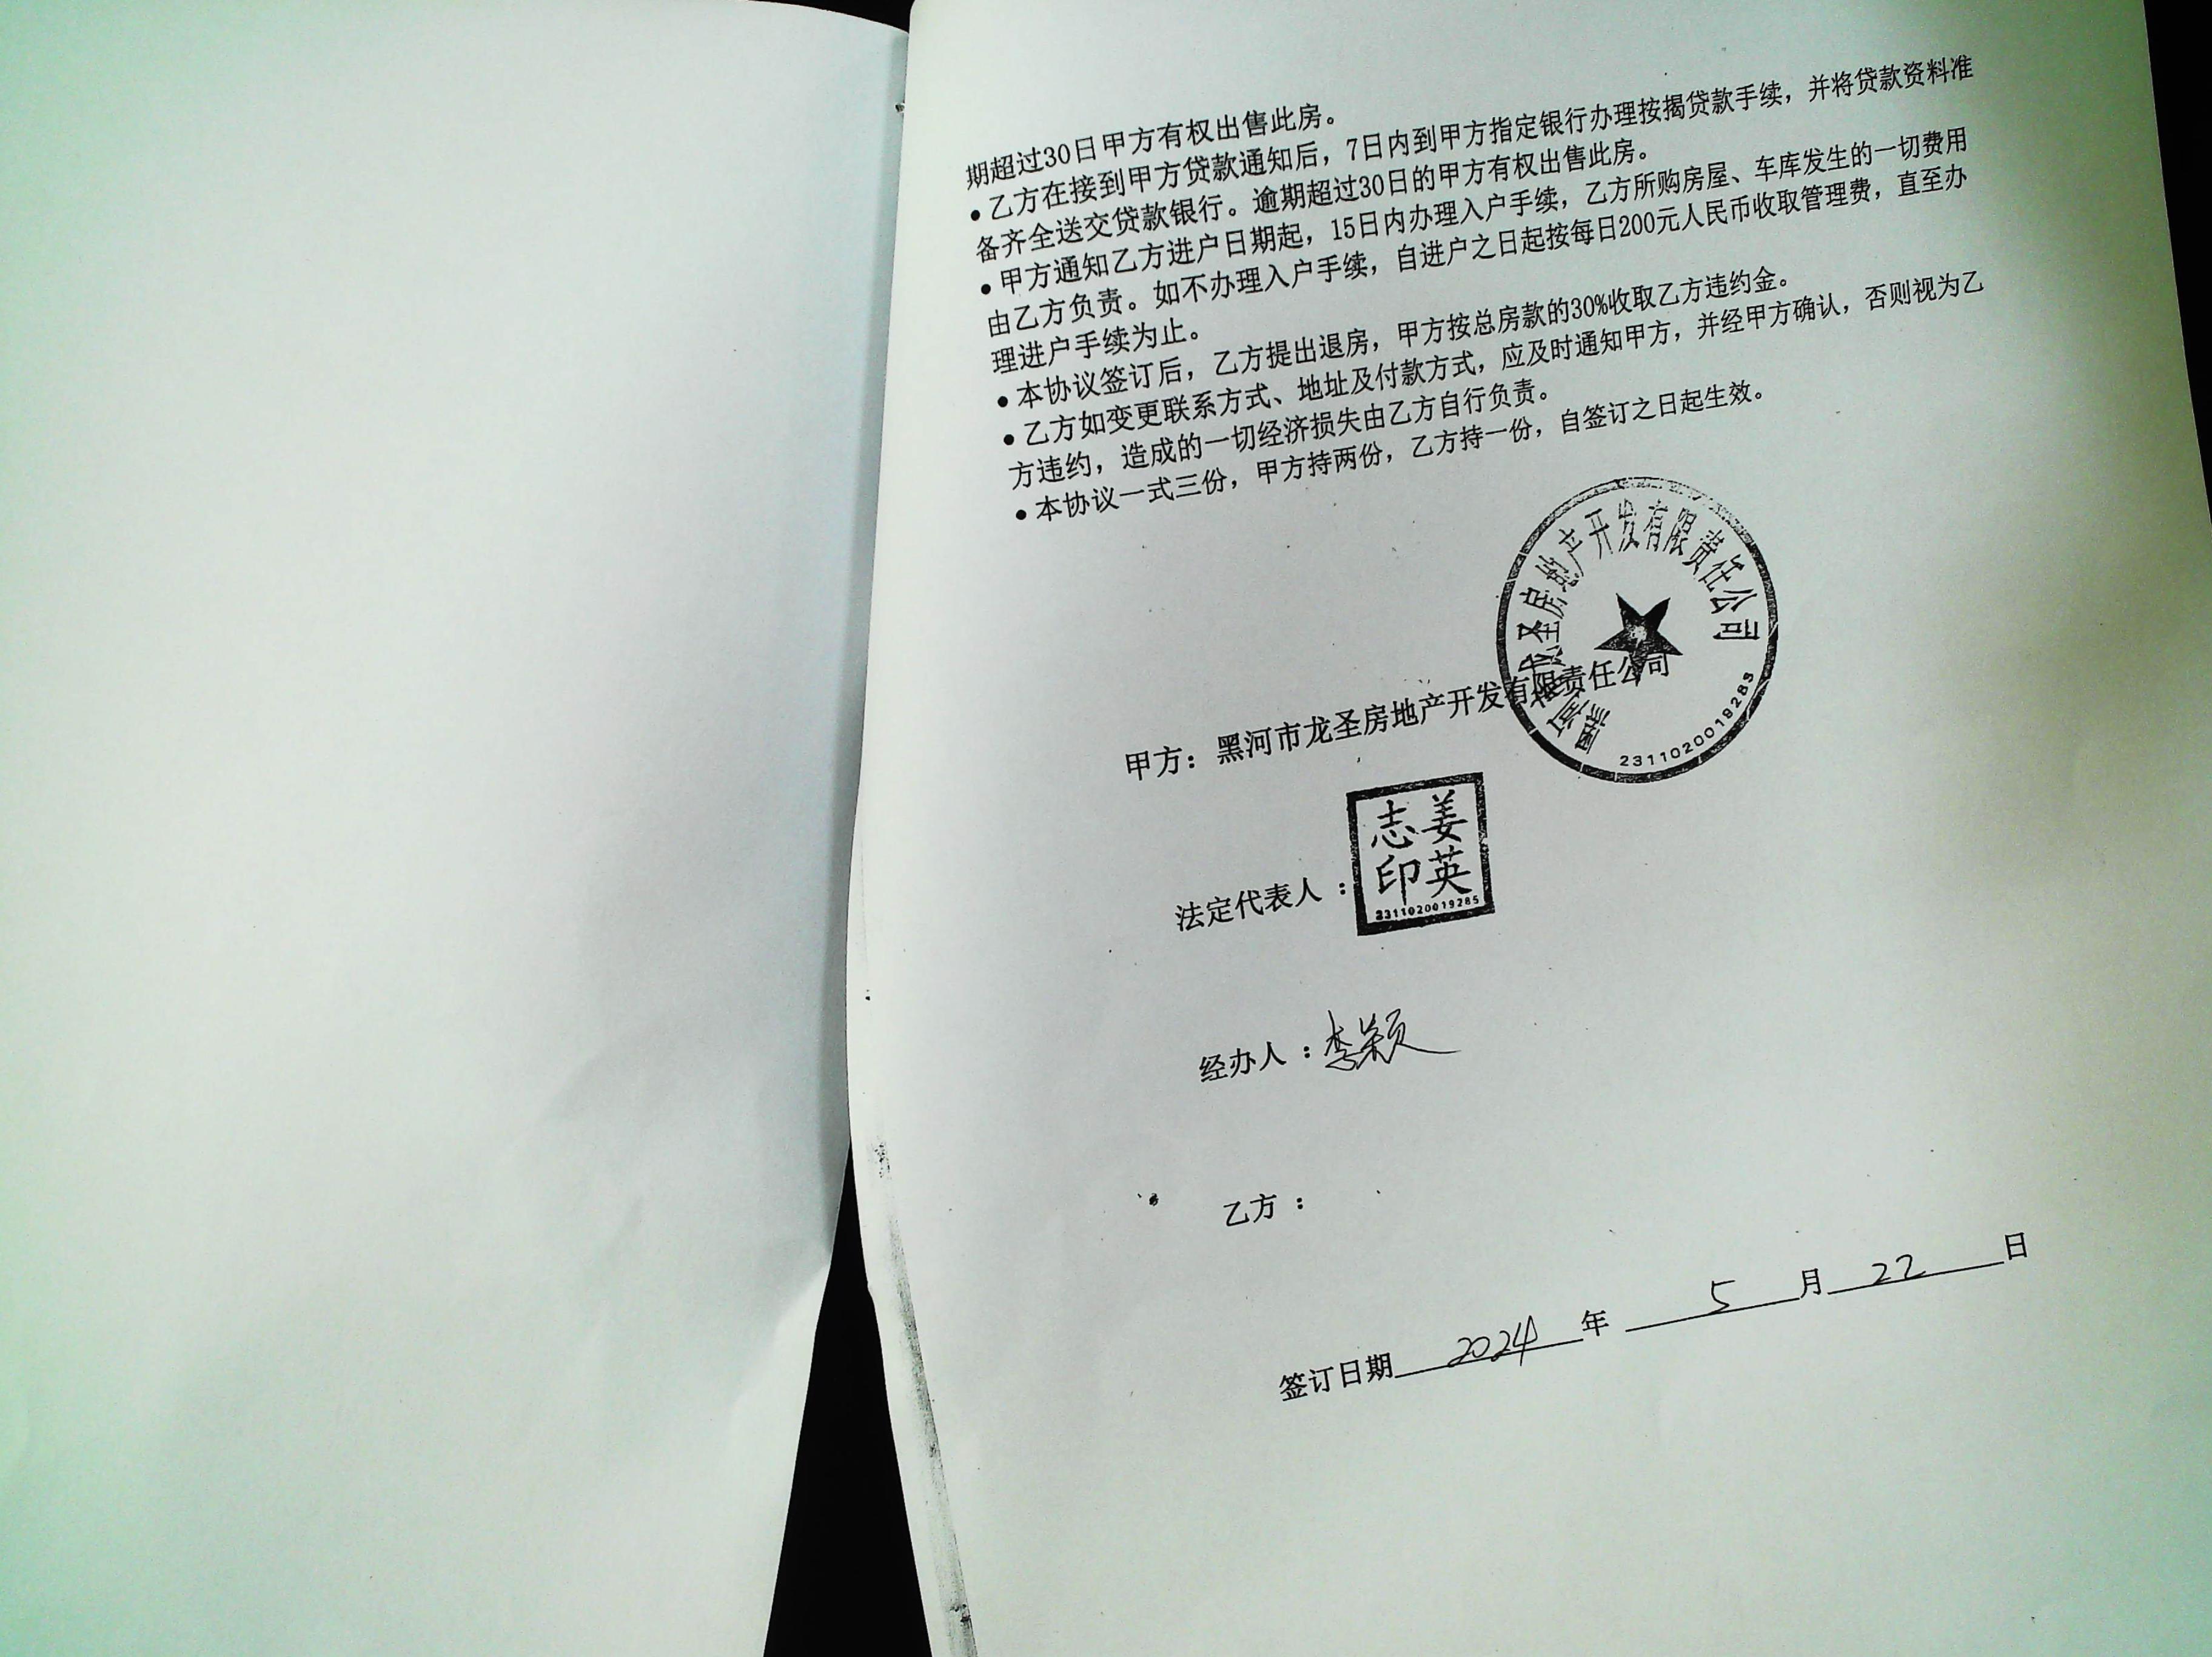 期超过30日甲方有权出售此房。
•乙方在接到甲方贷款通知后，7日内到甲方指定银行办理按揭贷款手续，并将贷款资料准
备齐全送交贷款银行。逾期超过30日的甲方有权出售此房。
•甲方通知乙方进户日期起，15日内办理入户手续，乙方所购房屋、车库发生的一切费用
由乙方负责。如不办理入户手续，自进户之日起按每日200元人民币收取管理费，直至办
理进户手续为止。
•本协议签订后，乙方提出退房，甲方按总房款的30%收取乙方违约金。
•乙方如变更联系方式、地址及付款方式，应及时通知甲方，并经甲方确认，否则视为乙
方违约，造成的一切经济损失由乙方自行负责。
•本协议一式三份，甲方持两份，乙方持一份，自签订之日起生效。
黑河市龙圣房地产开发有限责任公司
甲方：黑河市龙圣房地产开发有限责任公司
2311020018285
法定代表人：
姜英
志印
2311020019285
经办人：李颖
乙方：
签订日期 2024 年 5 月 22 日